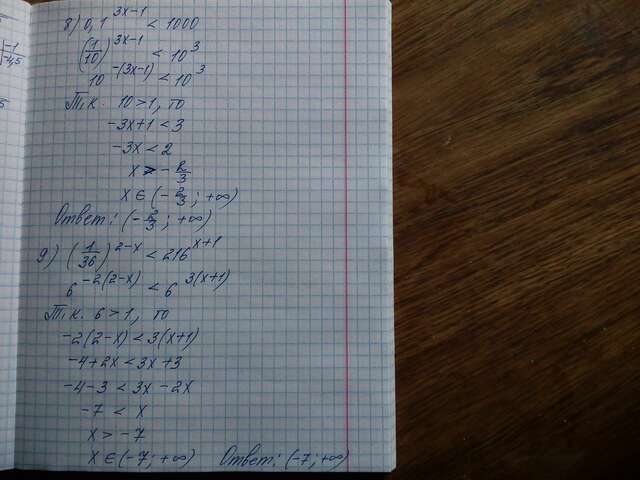 8) 0,1^(3x-1) < 1000
(1/10)^(3x-1) < 10^3
10^(-(3x-1)) < 10^3
Т.к. 10 > 1, то
-3x+1 < 3
-3x < 2
x > -2/3
x ∈ (-2/3; +∞)
Ответ: (-2/3; +∞)
9) (1/36)^(2-x) < 216^(x+1)
6^(-2(2-x)) < 6^(3(x+1))
Т.к. 6 > 1, то
-2(2-x) < 3(x+1)
-4+2x < 3x+3
-4-3 < 3x-2x
-7 < x
x > -7
x ∈ (-7; +∞) Ответ: (-7; +∞)
-1
-4,5